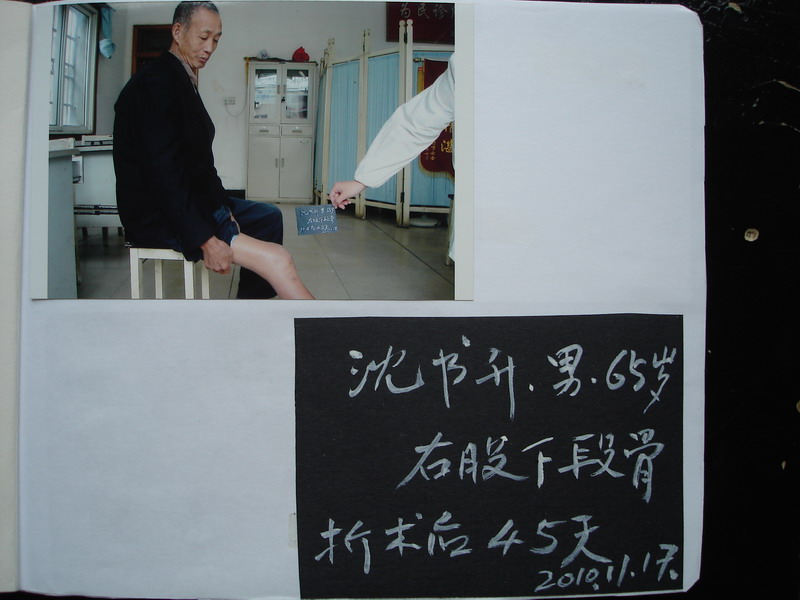 为民诊
沈书升、男、65岁
右股下段骨
折术后45天
2010.11.1天